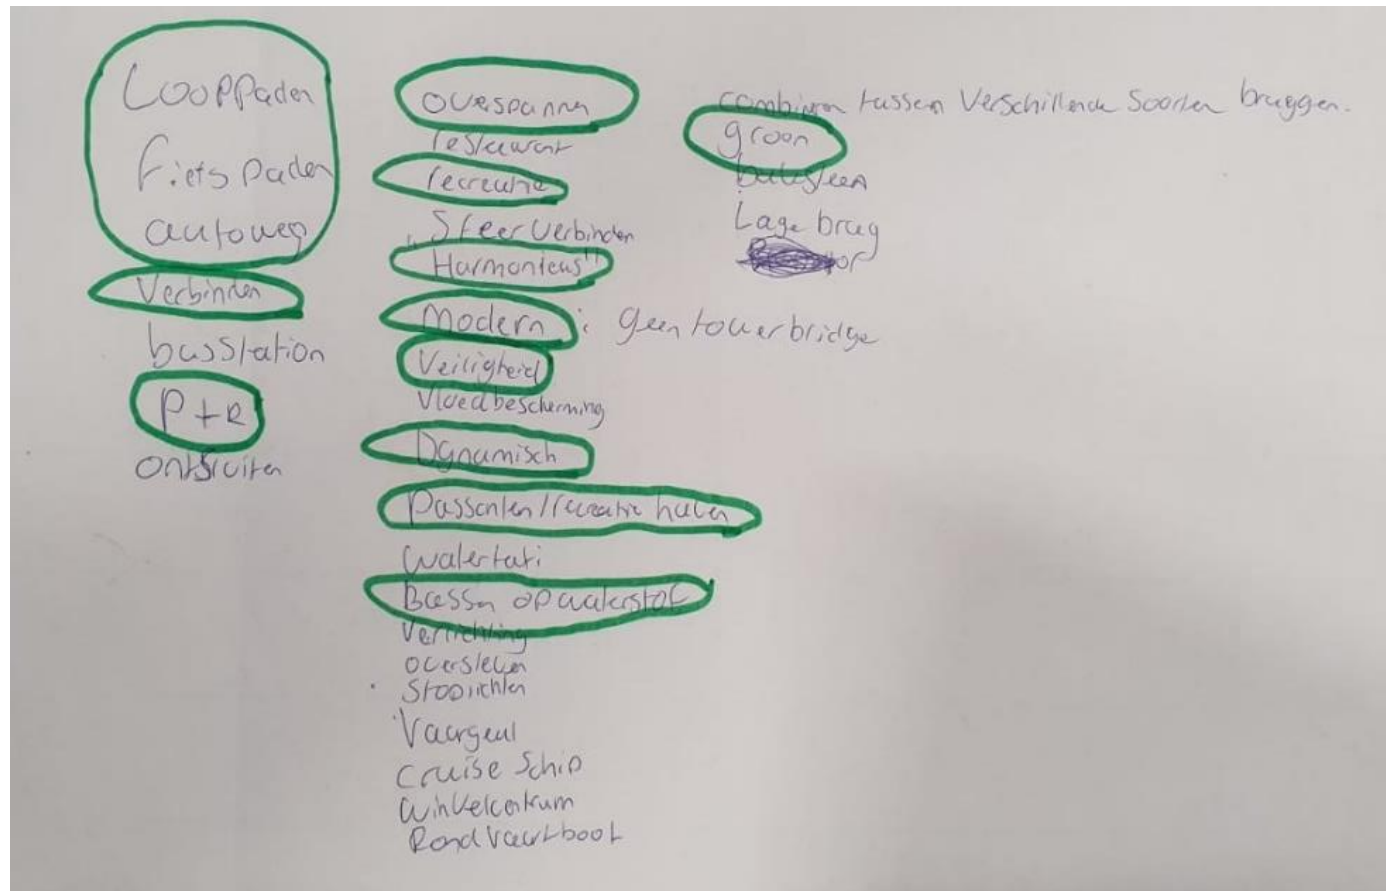 Looppaden
fietspaden
autoweg
Verbinden
busstation
P+R
ontsluiten
overspannen
restaurant
recreatie
„Sfeer verbinden
Harmonieus"
Modern : geen towerbridge
Veiligheid
Vloedbescherming
Dynamisch
Passanten/recreatie haven
watertaxi
Bussen op waterstof
Verlichting
oversteken
Stoplichten
Vaargeul
Cruise Schip
Winkelcentrum
Rondvaartboot
combineren tussen Verschillende Soorten bruggen.
groen
Lage brug